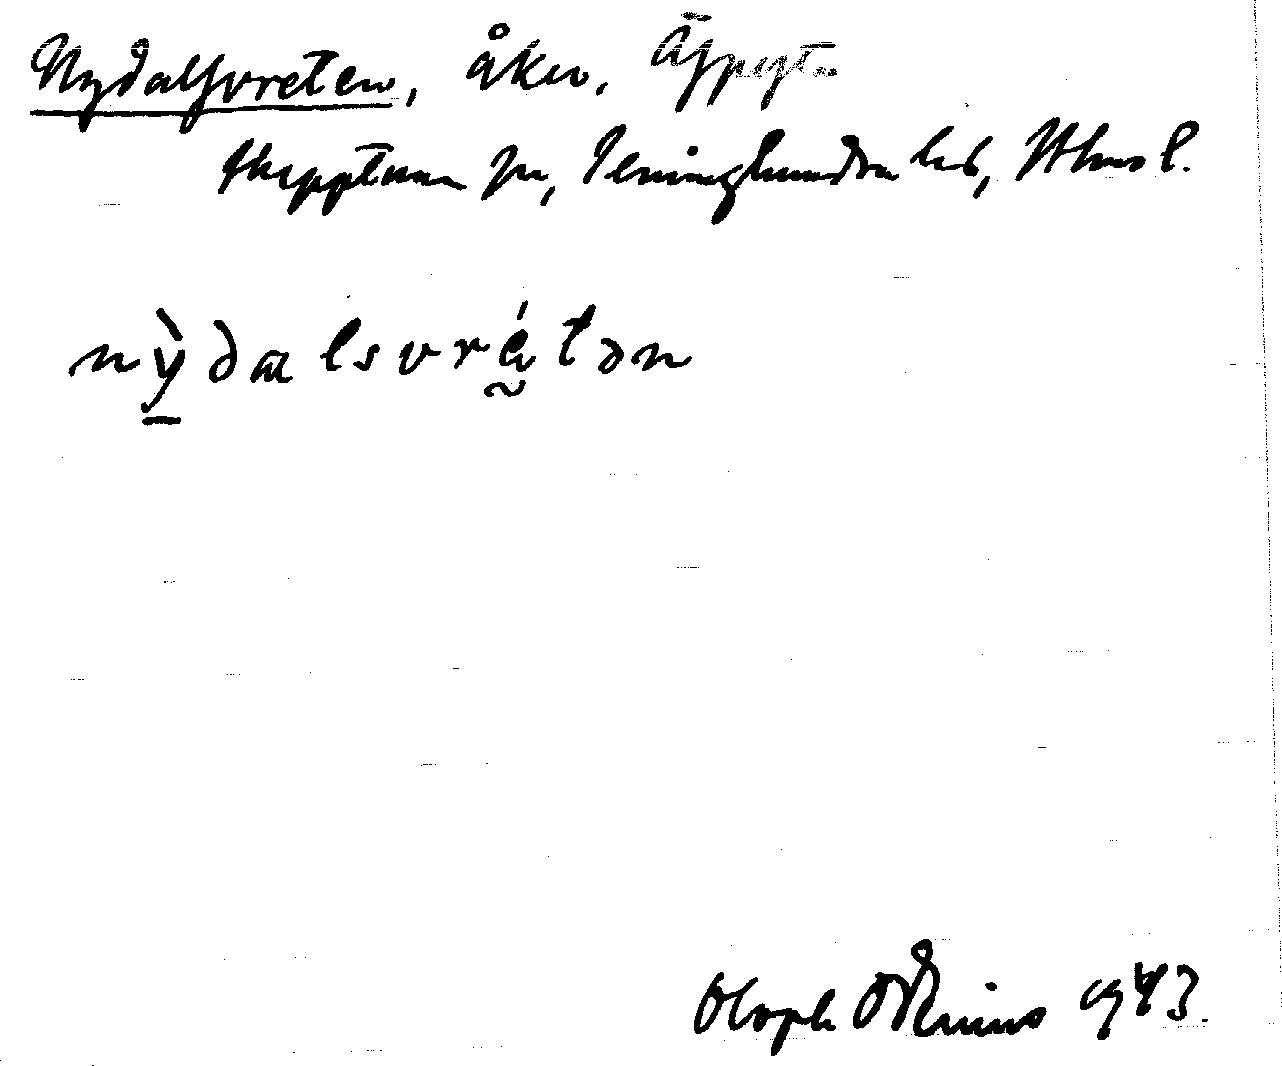 Nydalsvreten, åker, Äspest.
Skepptuna sn, Seminghundra hd, Sthms l.
nỳdalsvrétən
Oloph Odenius 1943.